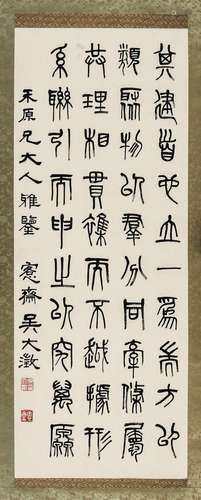 其建首也立一為耑方㠯
類聚物㠯羣分同牽條屬
共理相貫雜而不越據形
系聯引而申之㠯究萬厵
禾原兄大人雅鑒 愙齋吳大澂